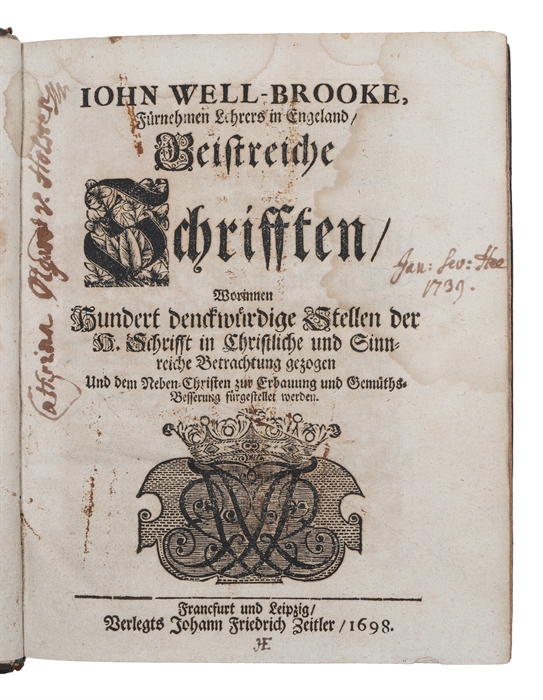 IOHN WELL-BROOKE,
Fürnehmen Lehrers in Engeland/
Geistreiche
Schrifften/
Worinnen
Hundert denckwürdige Stellen der
H. Schrifft in Christliche und Sinn-
reiche Betrachtung gezogen
Und dem Neben-Christen zur Erbauung und Gemüths-
Besserung fürgestellet werden.
Franckfurt und Leipzig/
Verlegts Johann Friedrich Zeitler/1698.
Jan:
1739.